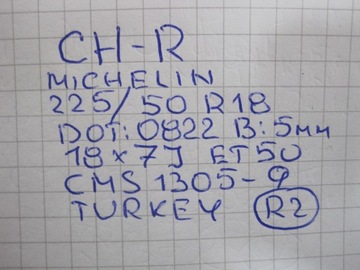 CH-R
MICHELIN
225/50 R18
DOT: 0822 B: 5мм
18x7J ET50
CMS 1305-9
TURKEY R2